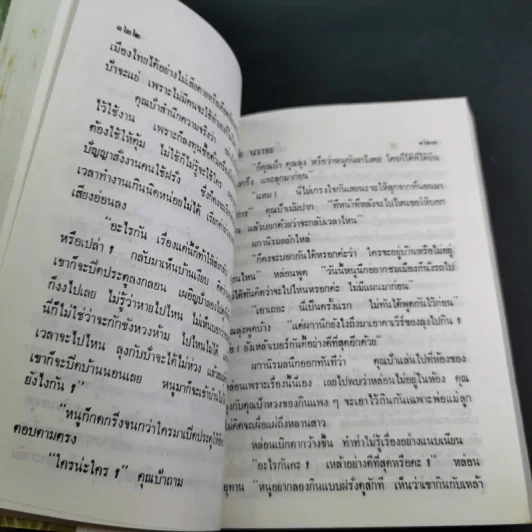 ๑๒๒
เมืองไทยได้อย่างไม่เสียดาย
ป้าจะแย่ เพราะไม่มีคนจะใช้ทำ
คุณป้าสำนึกความจริงว่า
ไว้ใช้งาน เพราะกิลงทุนซื้อตัว
ต้องใช้ให้คุ้ม ไม่ใช้ก็ไม่รู้จะใช้ใคร
บัญญาสั่งงานคนใช้ฝรั่ง
เวลาทำงานเกินนิดหน่อยไม่ได้
เสียงอ่อนลง
“อะไรกัน เรื่องแค่นี้ก็ทำให้
หรือเปล่า ? กลับมาเห็นบ้านเงียบ
เขาก็จะปิดประตูลงกลอน เผอิญป้า
ก็งงไปเลย ไม่รู้ว่าหายไปไหน
นี่ก็ไม่ใช่ว่าจะกักขังหวงห้าม ไปไหนไม่ได้
เวลาจะไปไหน ลุงกับป้าจะได้ไม่ห่วง
เขาก็จะปิดบ้านนอนเลย หนูมาก็จะเข้าบ้าน
ยังไงกัน ?”
“หนูก็กดกริ่งจนกว่าใครมาเปิดประตูให้
ตอบตามตรง
“ใครน่ะใคร ?” คุณป้าถาม
๑๒๓
“ก็คุณป้า คุณลุง หรือว่าหนูกันลาไงคะ ใครก็ได้ที่ได้ยิน
กริ่ง และลุกมาก่อน”
“แหม ! นี่ไม่เกรงใจกันเลยนะจะให้ลุกจากที่นอนมา
คุณป้าเม้มปาก “ทีหน้าทีหลังจะไปไหนขอให้บอก
แล้วบอกด้วยว่าจะกลับเวลาไหน”
ผกานิรมลยักไหล่
“ก็คงจะบอกกันได้หรอกค่ะว่า ใครจะอยู่บ้านหรือไม่อยู่
ไปไหน” หล่อนพูด “วันนี้หนูนึกอยากชมเมืองก็นั่งรถไป
ได้ทันคิดว่าจะไปไหนหรอกค่ะ ไม่มีแผนมาก่อน”
“เอาเถอะ นี่เป็นครั้งแรก ไม่ทันได้พูดกันไว้ก่อน”
คุณลุงพูดบ้าง “แต่ผกานึกยังไงถึงมาเอาคาเวียร์ของลุงไปกิน ?
ยังเหล้าเบอร์กันดีอย่างดีที่สุดอีกด้วย”
ผกานิรมลนึกออกทันทีว่า คุณป้าเล่นไปที่ห้องของ
หล่อนเพราะเรื่องนี้นี่เอง เลยไปพบว่าหล่อนไม่อยู่ในห้อง คุณ
ลุงกับคุณป้าหวงของกินแพง ๆ จะเอาไว้กินกันเฉพาะพ่อแม่ลูก
ไม่คิดจะเผื่อแผ่ถึงหลานสาว
หล่อนเบิกตากว้างขึ้น ทำท่าไม่รู้เรื่องอย่างแนบเนียน
“อะไรกันคะ ? เหล้าอย่างดีที่สุดหรือคะ ?” หล่อน
อุทาน “หนูอยากลองกินแบบฝรั่งดูสักที เห็นว่าเขากินกับเหล้า